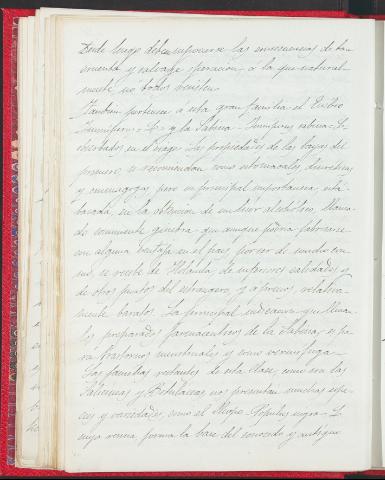 Desde luego deben suponerse las consecuencias de tan
cruenta y salvage operacion, a la que natural-
mente, no todos resisten.
Tambien pertenece á esta gran familia el Enebro
Juniniperus - L. y la Sabina - Juniperus sabina - L.
observados en el viage. Las propiedades de las bayas del
primero, se recomiendan como estomacales, diureticas
y emenagogas, pero su principal importancia, esta
basada, en la obtencion de un licor alcohólico, llama-
do comunmente ginebra, que aunque podria fabricarse
con alguna ventaja en el pais por ser de mucho con-
sumo, se recibe de Holanda, de inferiores calidades y
de otros puntos del estrangero, y a precios, relativa-
mente baratos. La principal indicacion que llena
los preparados farmaceuticos de la Sabina, es pa-
ra trastornos menstruales y como vermifuga.
Las familias restantes de esta clase, como son las
Salicineas y Betulaceas nos presentan muchas espe-
cies y variedades, como el Chopo - Populus nigra - L.
cuya resina forma la base del conocido y antiguo